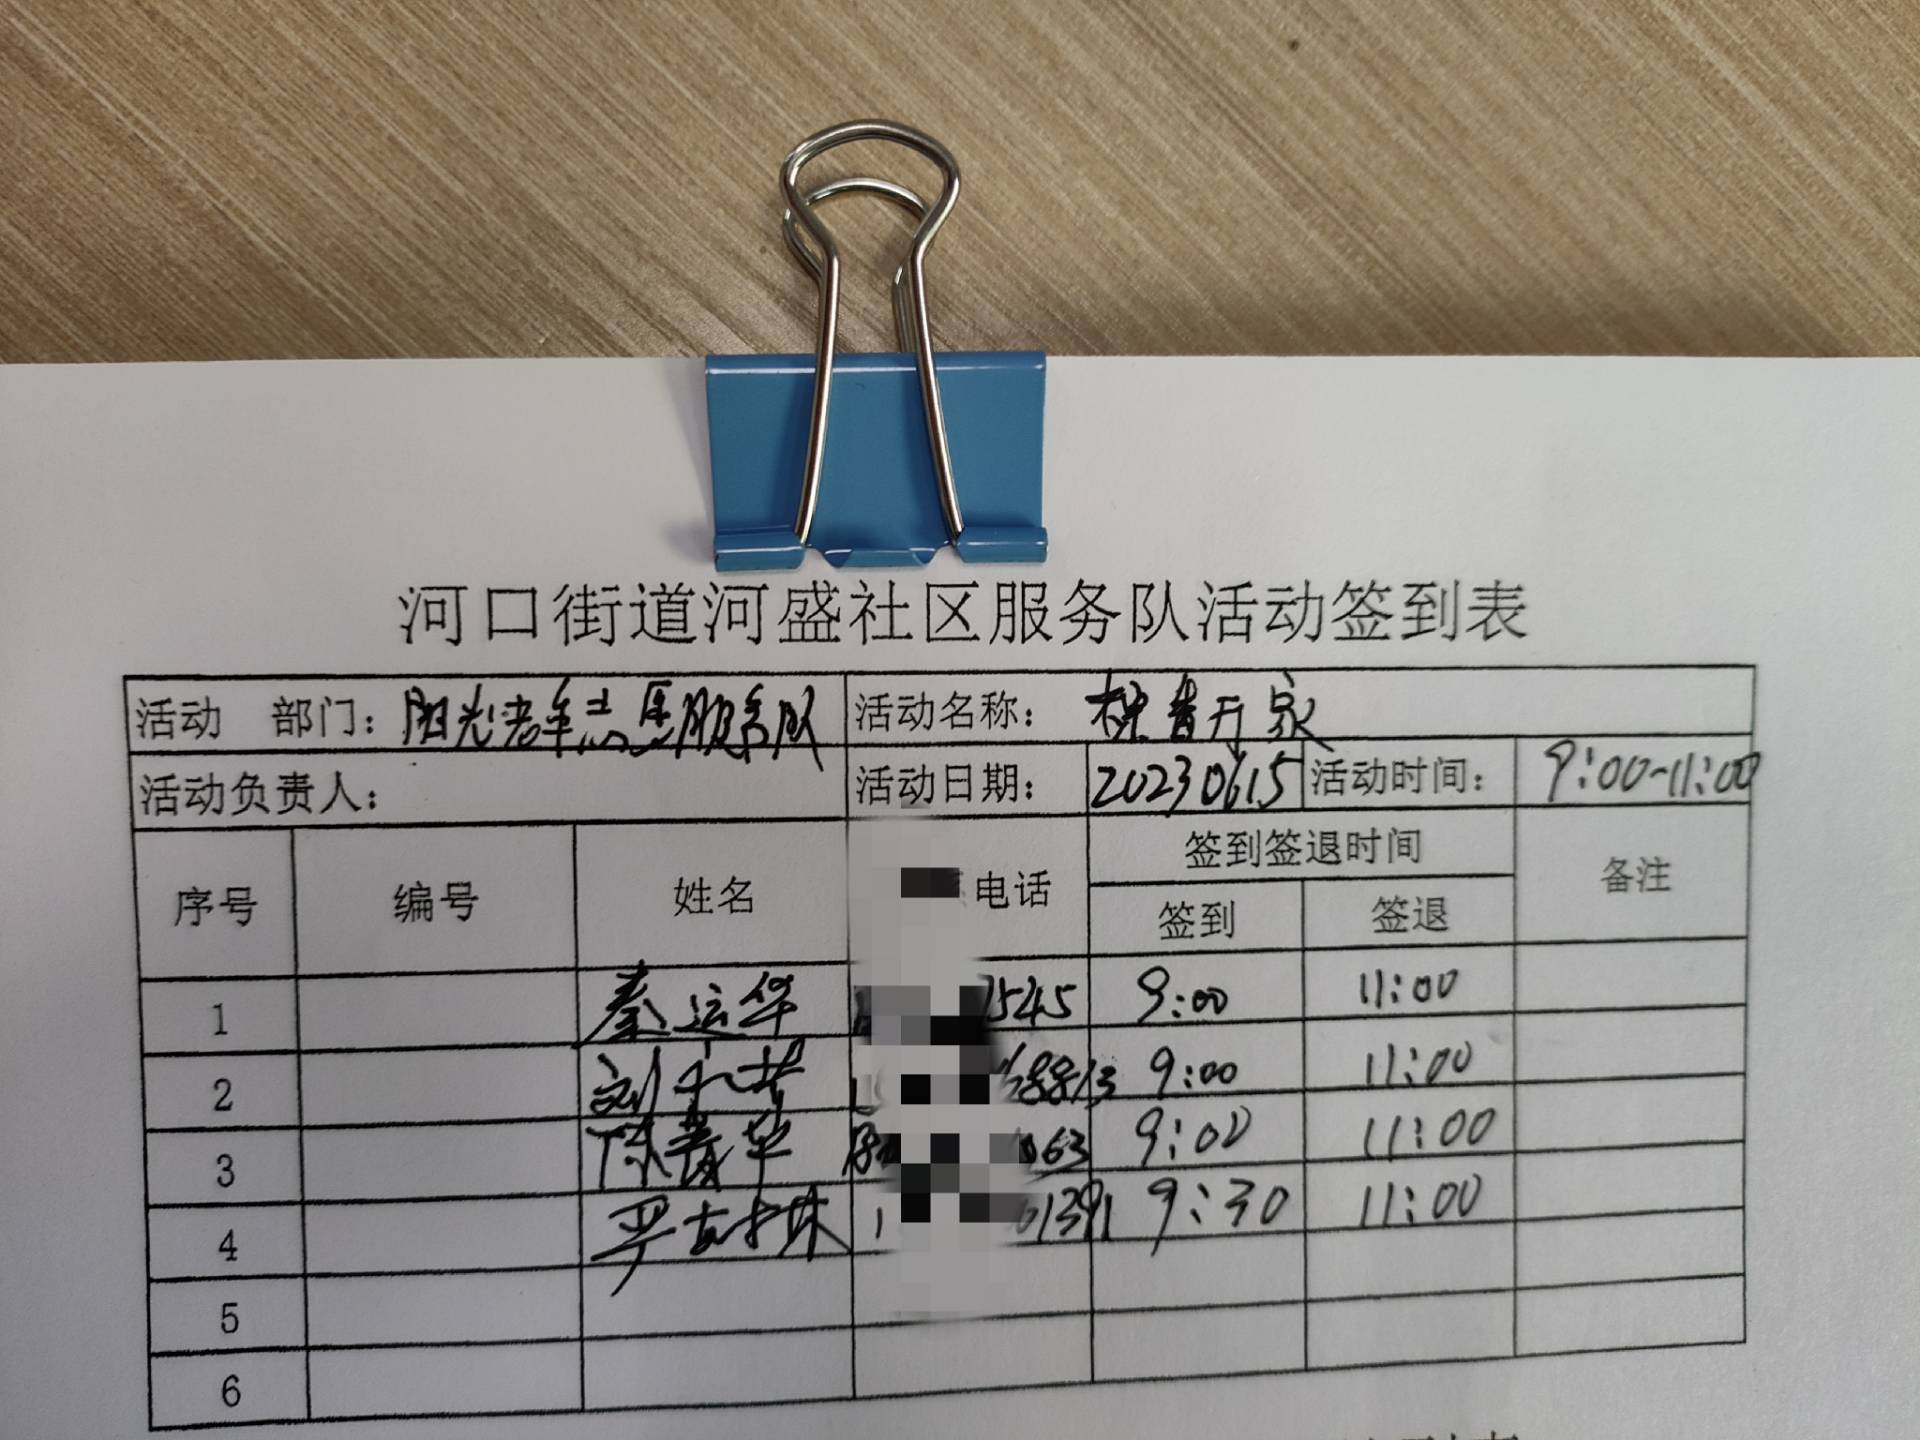 河口街道河盛社区服务队活动签到表
活动 部门：阳光老年志愿服务队 活动名称：
活动负责人： 活动日期：20230615 活动时间：9:00-11:00
序号 编号 姓名 电话 签到签退时间 备注
签到 签退
1 秦运华 1545 9:00 11:00
2 刘 8813 9:00 11:00
3 陈菁华 063 9:00 11:00
4 严 01391 9:30 11:00
5
6